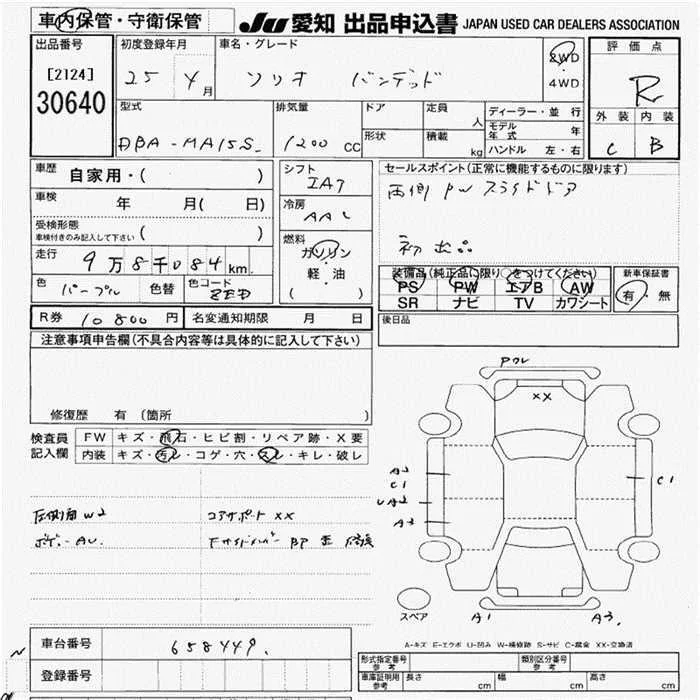 車内保管・守衛保管
JU 愛知 出品申込書 JAPAN USED CAR DEALERS ASSOCIATION
出品番号
[2124]
30640
初度登録年月
25 4 月
車名・グレード
ソリオ バンデット
2WD
・
4WD
評価点
R
外装 内装
C B
型式
DBA-MA15S
排気量
1200 CC
ドア
形状
定員 人
積載 kg
ディーラー・並行
モデル年式 年
ハンドル 左・右
車歴
自家用・( )
車検
年 月( 日)
受検形態
車検付きのみ記入して下さい ( )
走行
9万8千084 km
色 パープル 色替 色コード ZED
シフト
IA7
冷房
AAC
燃料
ガソリン
・
軽・油
( )
セールスポイント(正常に機能するものに限ります)
両側PWスライドドア
初出品
装備品(純正品に限り○をつけてください)
PS PW エアB AW
SR ナビ TV カワシート
新車保証書
有・無
R券 10800 円 名変通知期限 月 日
後日品
注意事項申告欄(不具合内容等は具体的に記入して下さい)
修復歴 有 (箇所 )
検査員
記入欄
FW キズ・飛石・ヒビ割・リペア跡・X要
内装 キズ・汚レ・コゲ・穴・スレ・キレ・破レ
左側面W2
ボデーAU
コアサポートXX
PクレXX
A2
C1
UA2
A2
C1
スペア
A1
A3
A-キズ E-エクボ U-凹み W-補修跡 S-サビ C-腐食 XX-交換済
車台番号 658449
登録番号
形式指定番号
参考
類別区分番号
参考
車庫証明用
参考
長さ cm 幅 cm 高さ cm